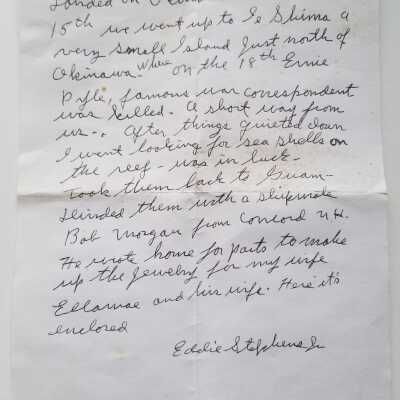 Landed on
15th we went up to Ie Shima a
very small Island just north of
Okinawa. Where on the 18th Ernie
Pyle, famous war correspondent
was killed. A short way from
us-. After things quieted down
I went looking for sea shells on
the reef - was in luck -
Took them back to Guam -
them with a shipmate
Bob Morgan from Concord N.H.
He wrote home for parts to make
up the Jewelry for my wife
Ellamae and his wife. Here it's
enclosed
Eddie Stephens Jr